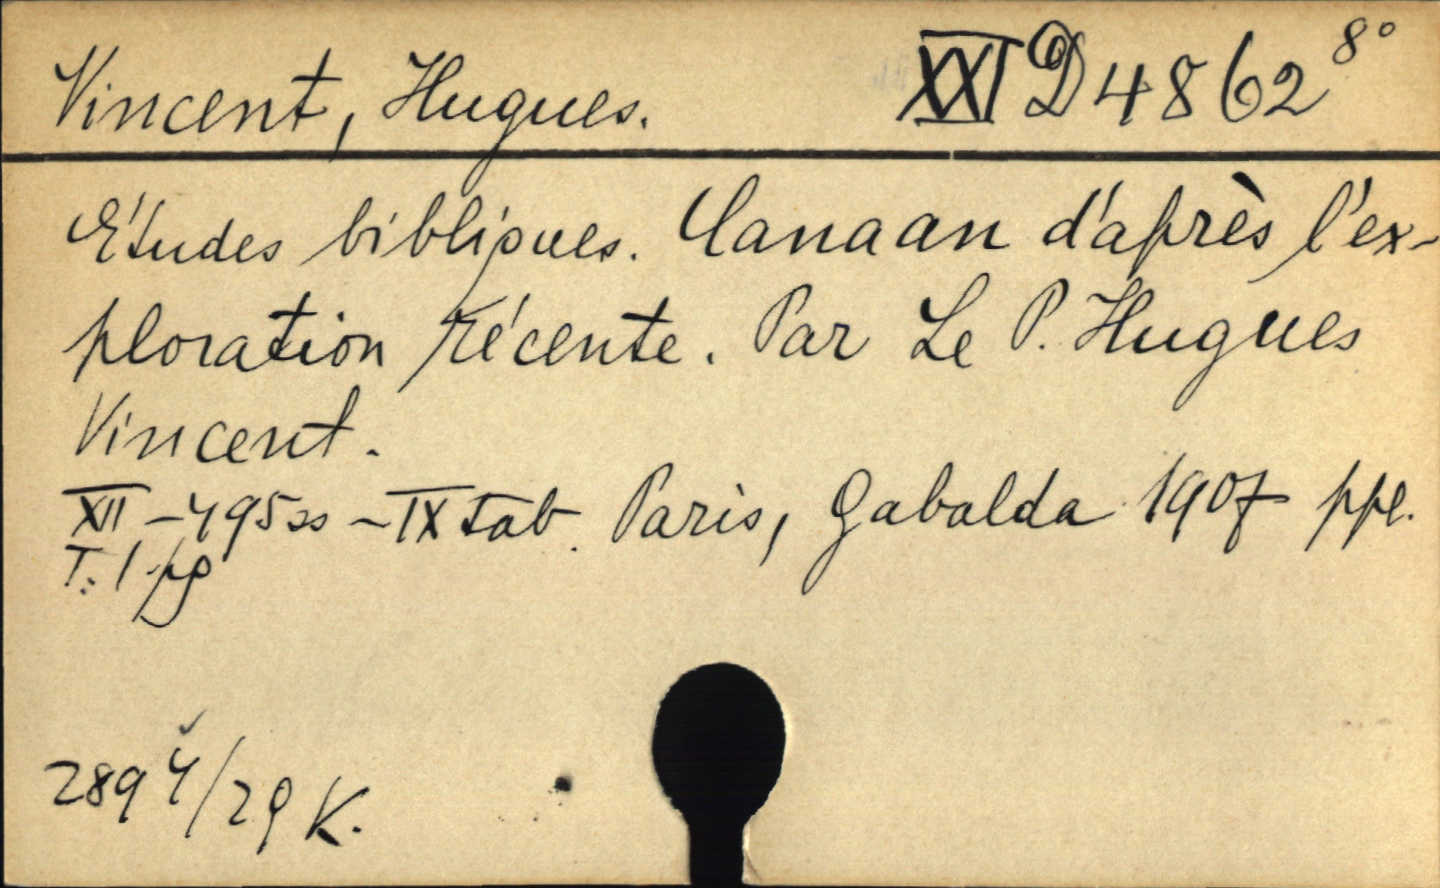 Vincent, Hugues. XXI D 4862 8°
Études bibliques. Canaan d'après l'ex-
ploration récente. Par Le P. Hugues
Vincent.
XII - 495 ss - IX tab. Paris, Gabalda 1907 ppl.
T: 1 pg
2894/29 K.